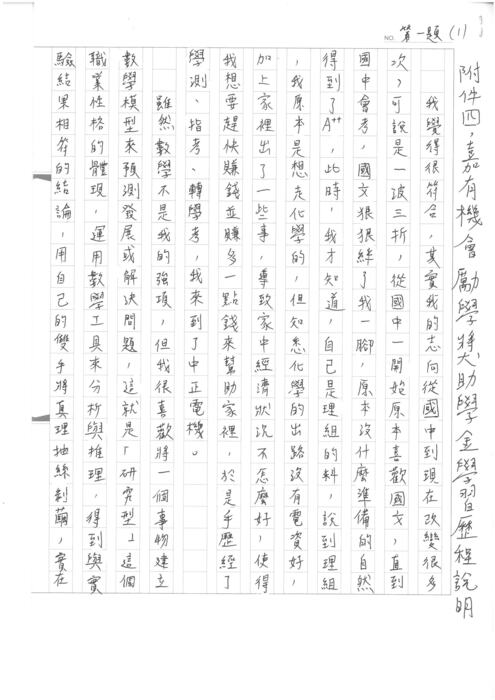 NO. 第一題 (1)
附件四，嘉有機會勵學獎助學金學習歷程說明
我覺得很符合，其實我的志向從國中到現在改變很多
次，可說是一波三折，從國中一開始原本喜歡國文，直到
國中會考，國文狠狠絆了我一腳，原本沒什麼準備的自然
得到了A++，此時，我才知道，自己是理組的料，說到理組
，我原本是想走化學的，但知悉化學的出路沒有電資好，
加上家裡出了一些事，導致家中經濟狀況不怎麼好，使得
我想要趕快賺錢並賺多一點錢來幫助家裡，於是乎歷經了
學測、指考、轉學考，我來到了中正電機。
雖然數學不是我的強項，但我很喜歡將一個事物建立
數學模型來預測發展或解決問題，這就是「研究型」這個
職業性格的體現，運用數學工具來分析與推理，得到與實
驗結果相符的結論，用自己的雙手將真理抽絲剝繭，實在